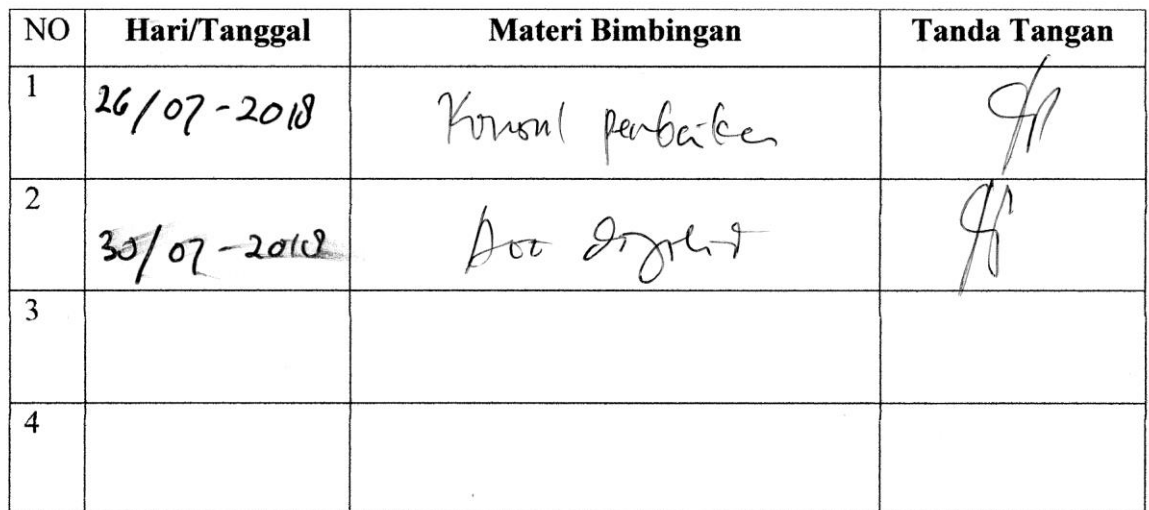 NO Hari/Tanggal Materi Bimbingan Tanda Tangan
1 26/07-2018 Konsul perbaikan
2 30/07-2018 Acc
3
4